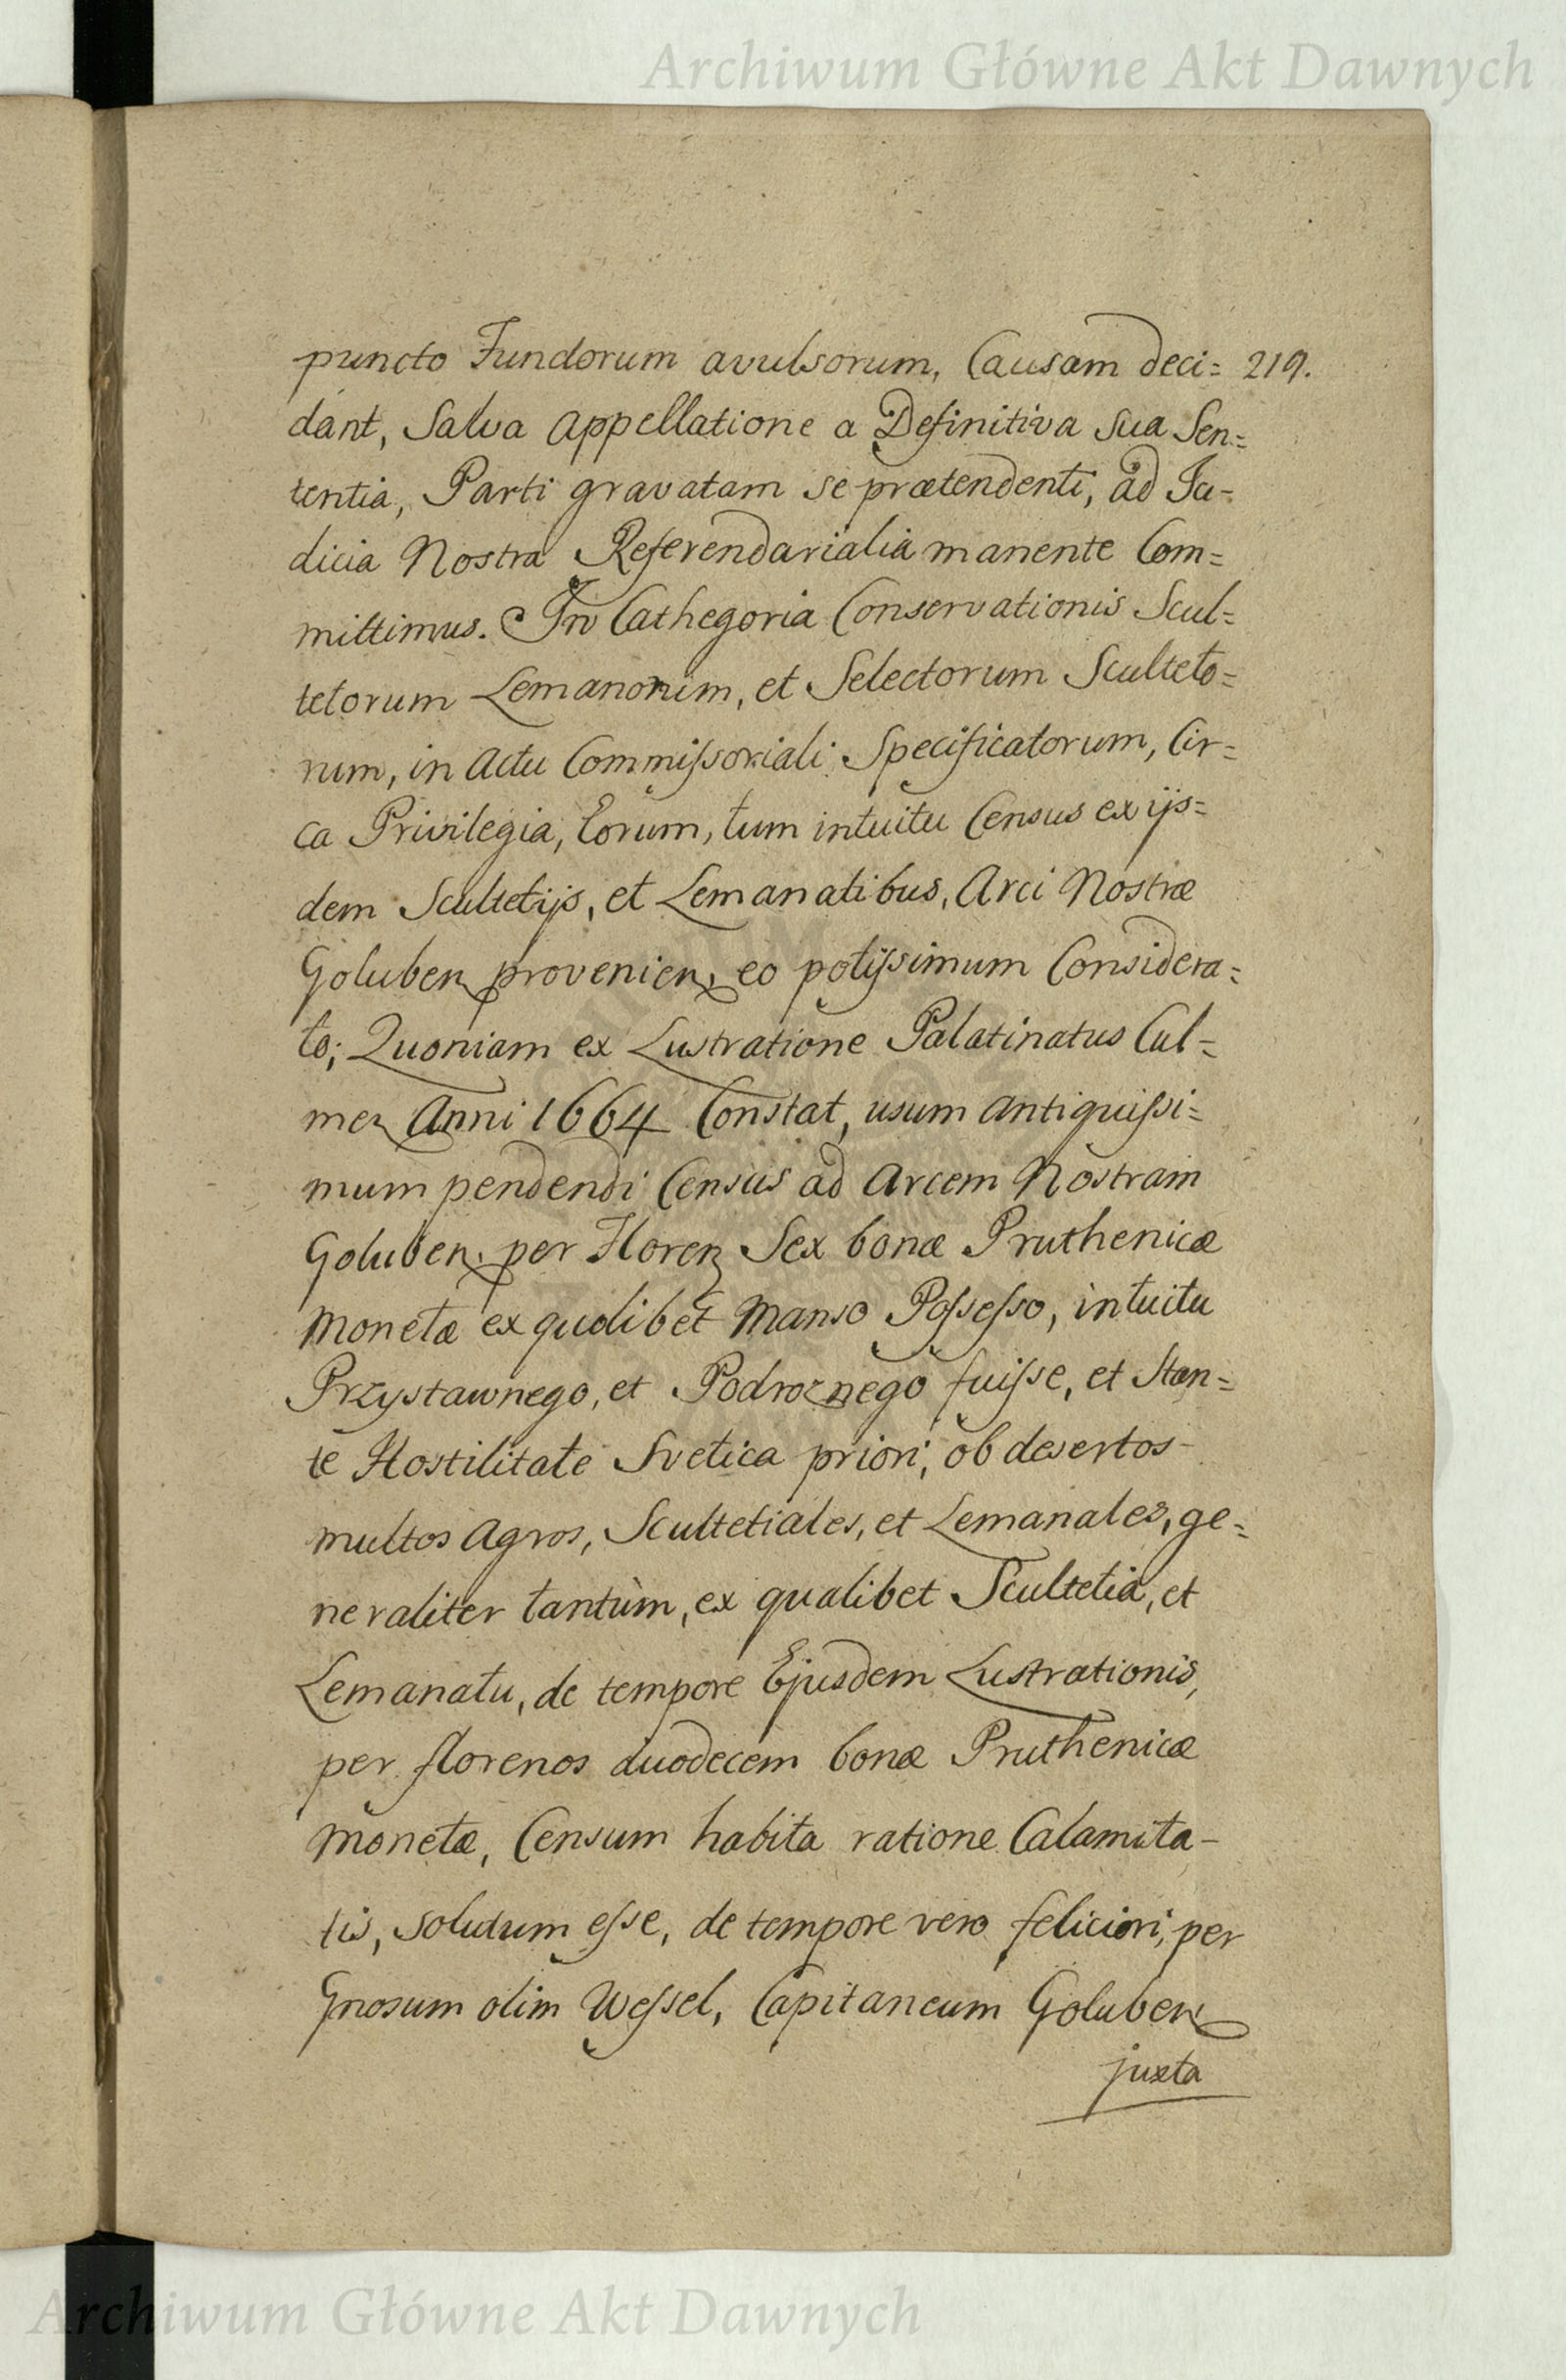 Archiwum Główne Akt Dawnych
puncto Fundorum avulsorum, Causam deci= 219.
dant, Salva Appellatione a Definitiva sua Sen=
tentia, Parti gravatam se prætendenti, ad Ju=
dicia Nostra Referendarialia manente Com=
mittimus. In Cathegoria Conservationis Scul=
tetorum Lemanorum, et Selectorum Sculteto=
rum, in Actu Commissoriali Specificatorum, Cir=
ca Privilegia, Eorum, tum intuitu Census ex ijs=
dem Scultetijs, et Lemanatibus, Arci Nostræ
Goluben provenien, eo potissimum Considera=
to; Quoniam ex Lustratione Palatinatus Cul=
men Anni 1664 Constat, usum antiquissi=
mum pendendi Census ad Arcem Nostram
Goluben. per Floren Sex bonæ Pruthenicæ
Monetæ ex quolibet Manso Possesso, intuitu
Przystawnego, et Podroznego fuisse, et Stan=
te Hostilitate Svetica priori, ob desertos
multos Agros, Scultetiales, et Lemanales, ge=
neraliter tantùm, ex qualibet Scultetia, et
Lemanatu, de tempore Ejusdem Lustrationis,
per florenos duodecem bonæ Pruthenicæ
Monetæ, Censum habita ratione Calamita-
tis, solutum esse, de tempore vero feliciori, per
Gnosum olim Wessel, Capitaneum Goluben
juxta
Archiwum Główne Akt Dawnych